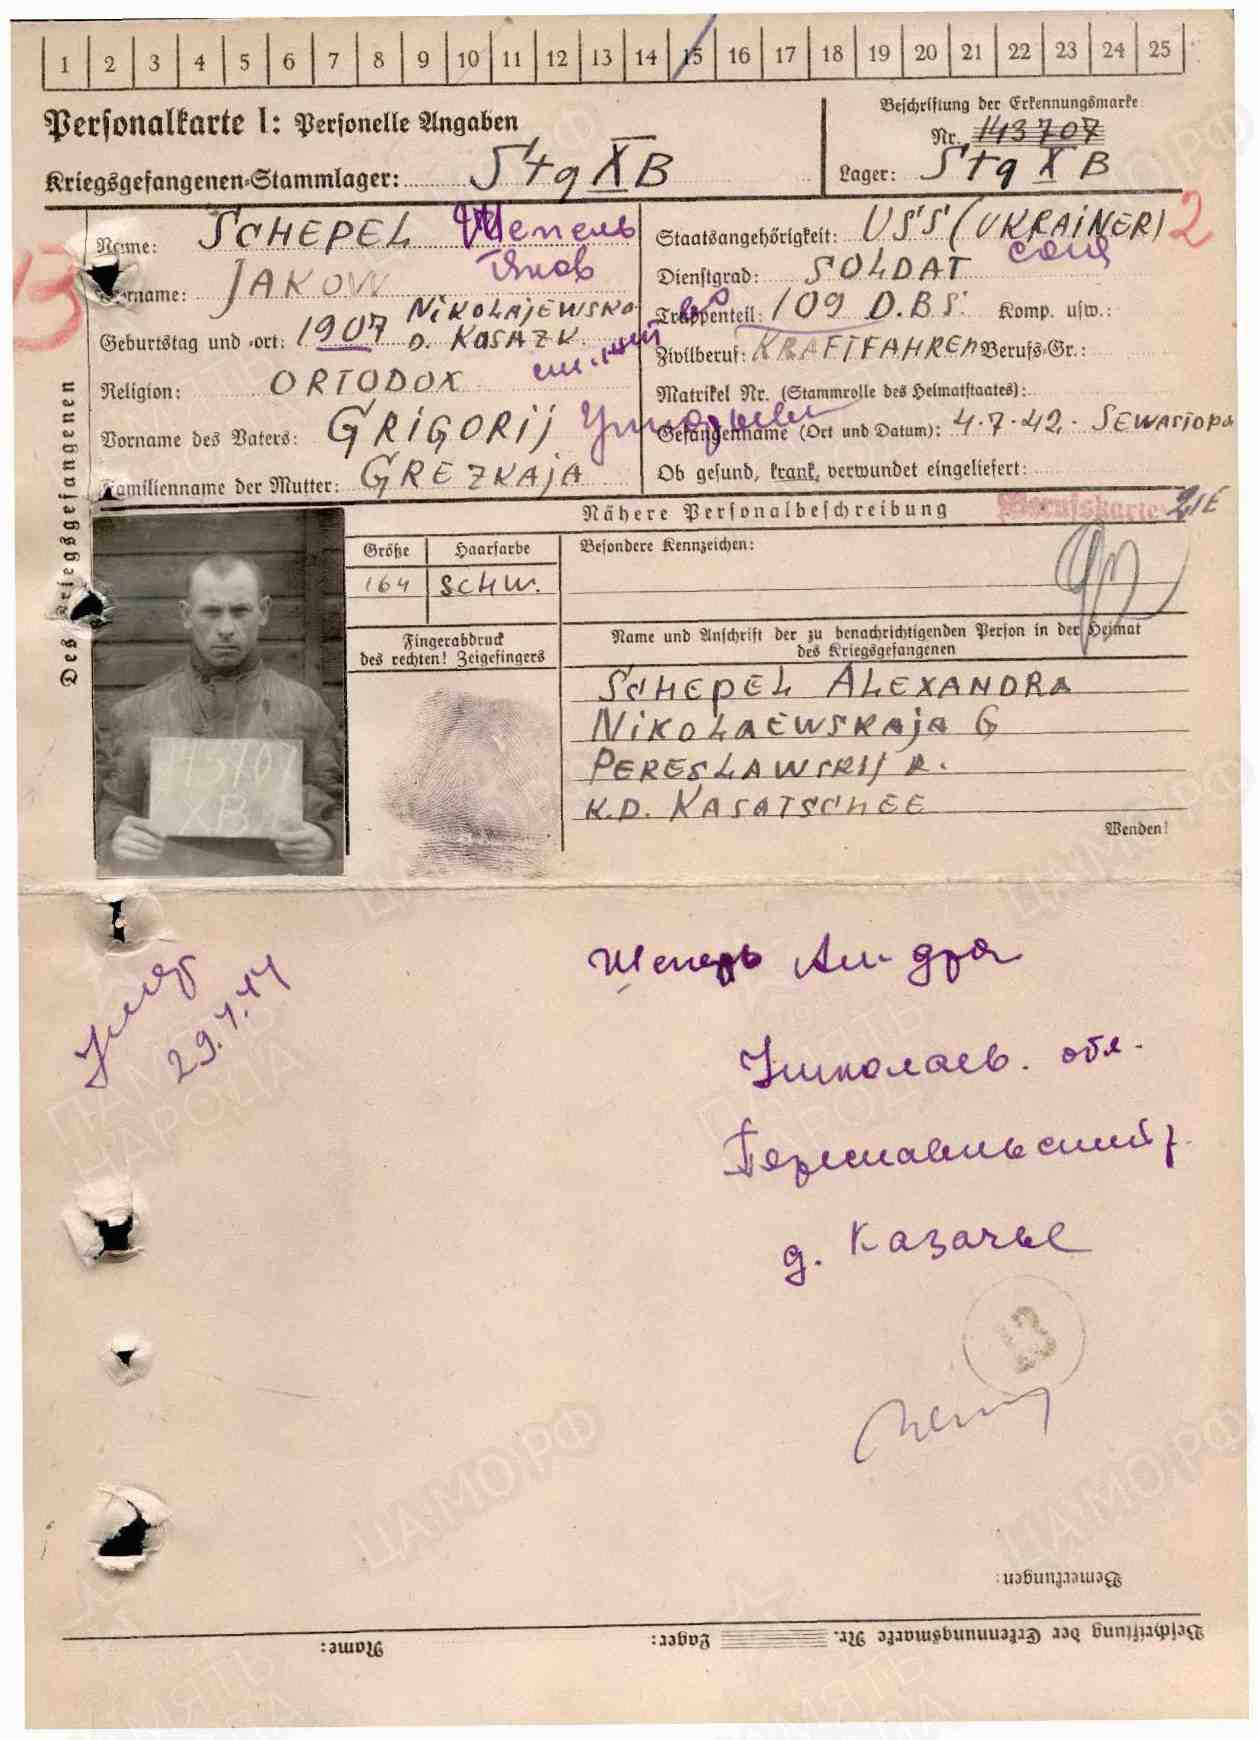 1 2 3 4 5 6 7 8 9 10 11 12 13 14 15 16 17 18 19 20 21 22 23 24 25
Personalkarte I: Personelle Angaben
Kriegsgefangenen-Stammlager: Stg X B
Beschriftung der Erkennungsmarke
Nr. 143707
Lager: Stg X B
Des Kriegsgefangenen
13
Name: SCHEPEL Шепель
Vorname: JAKOW Яков
Geburtstag und -ort: 1907 NIKOLAJEWSKO
D. KASAZK.
Religion: ORTODOX
Vorname des Vaters: GRIGORIJ
Familienname der Mutter: GREZKAJA
Staatsangehörigkeit: USS (UKRAINER) 2
Dienstgrad: SOLDAT солд
Truppenteil: 109 D.B.S. Komp. usw.:
Zivilberuf: KRAFTFAHRER Berufs-Gr.:
Matrikel Nr. (Stammrolle des Heimatstaates):
Gefangennahme (Ort und Datum): 4.7.42. SEWASTOPO
Ob gesund, krank, verwundet eingeliefert:
Nähere Personalbeschreibung
Berufskarte
Größe Haarfarbe
164 SCHW.
Besondere Kennzeichen:
Fingerabdruck
des rechten! Zeigefingers
143707
XB
Name und Anschrift der zu benachrichtigenden Person in der Heimat
des Kriegsgefangenen
SCHEPEL ALEXANDRA
NIKOLAEWSKAJA G
PERESLAWSKIJ R.
K.D. KASATSCHEE
Wenden!
29.4.44
Николаев. обл.
д. Казачье
13
Bemerkungen:
Beschriftung der Erkennungsmarke Nr. Lager: Name:
ПАМЯТЬ НАРОДА
ЦАМО.РФ